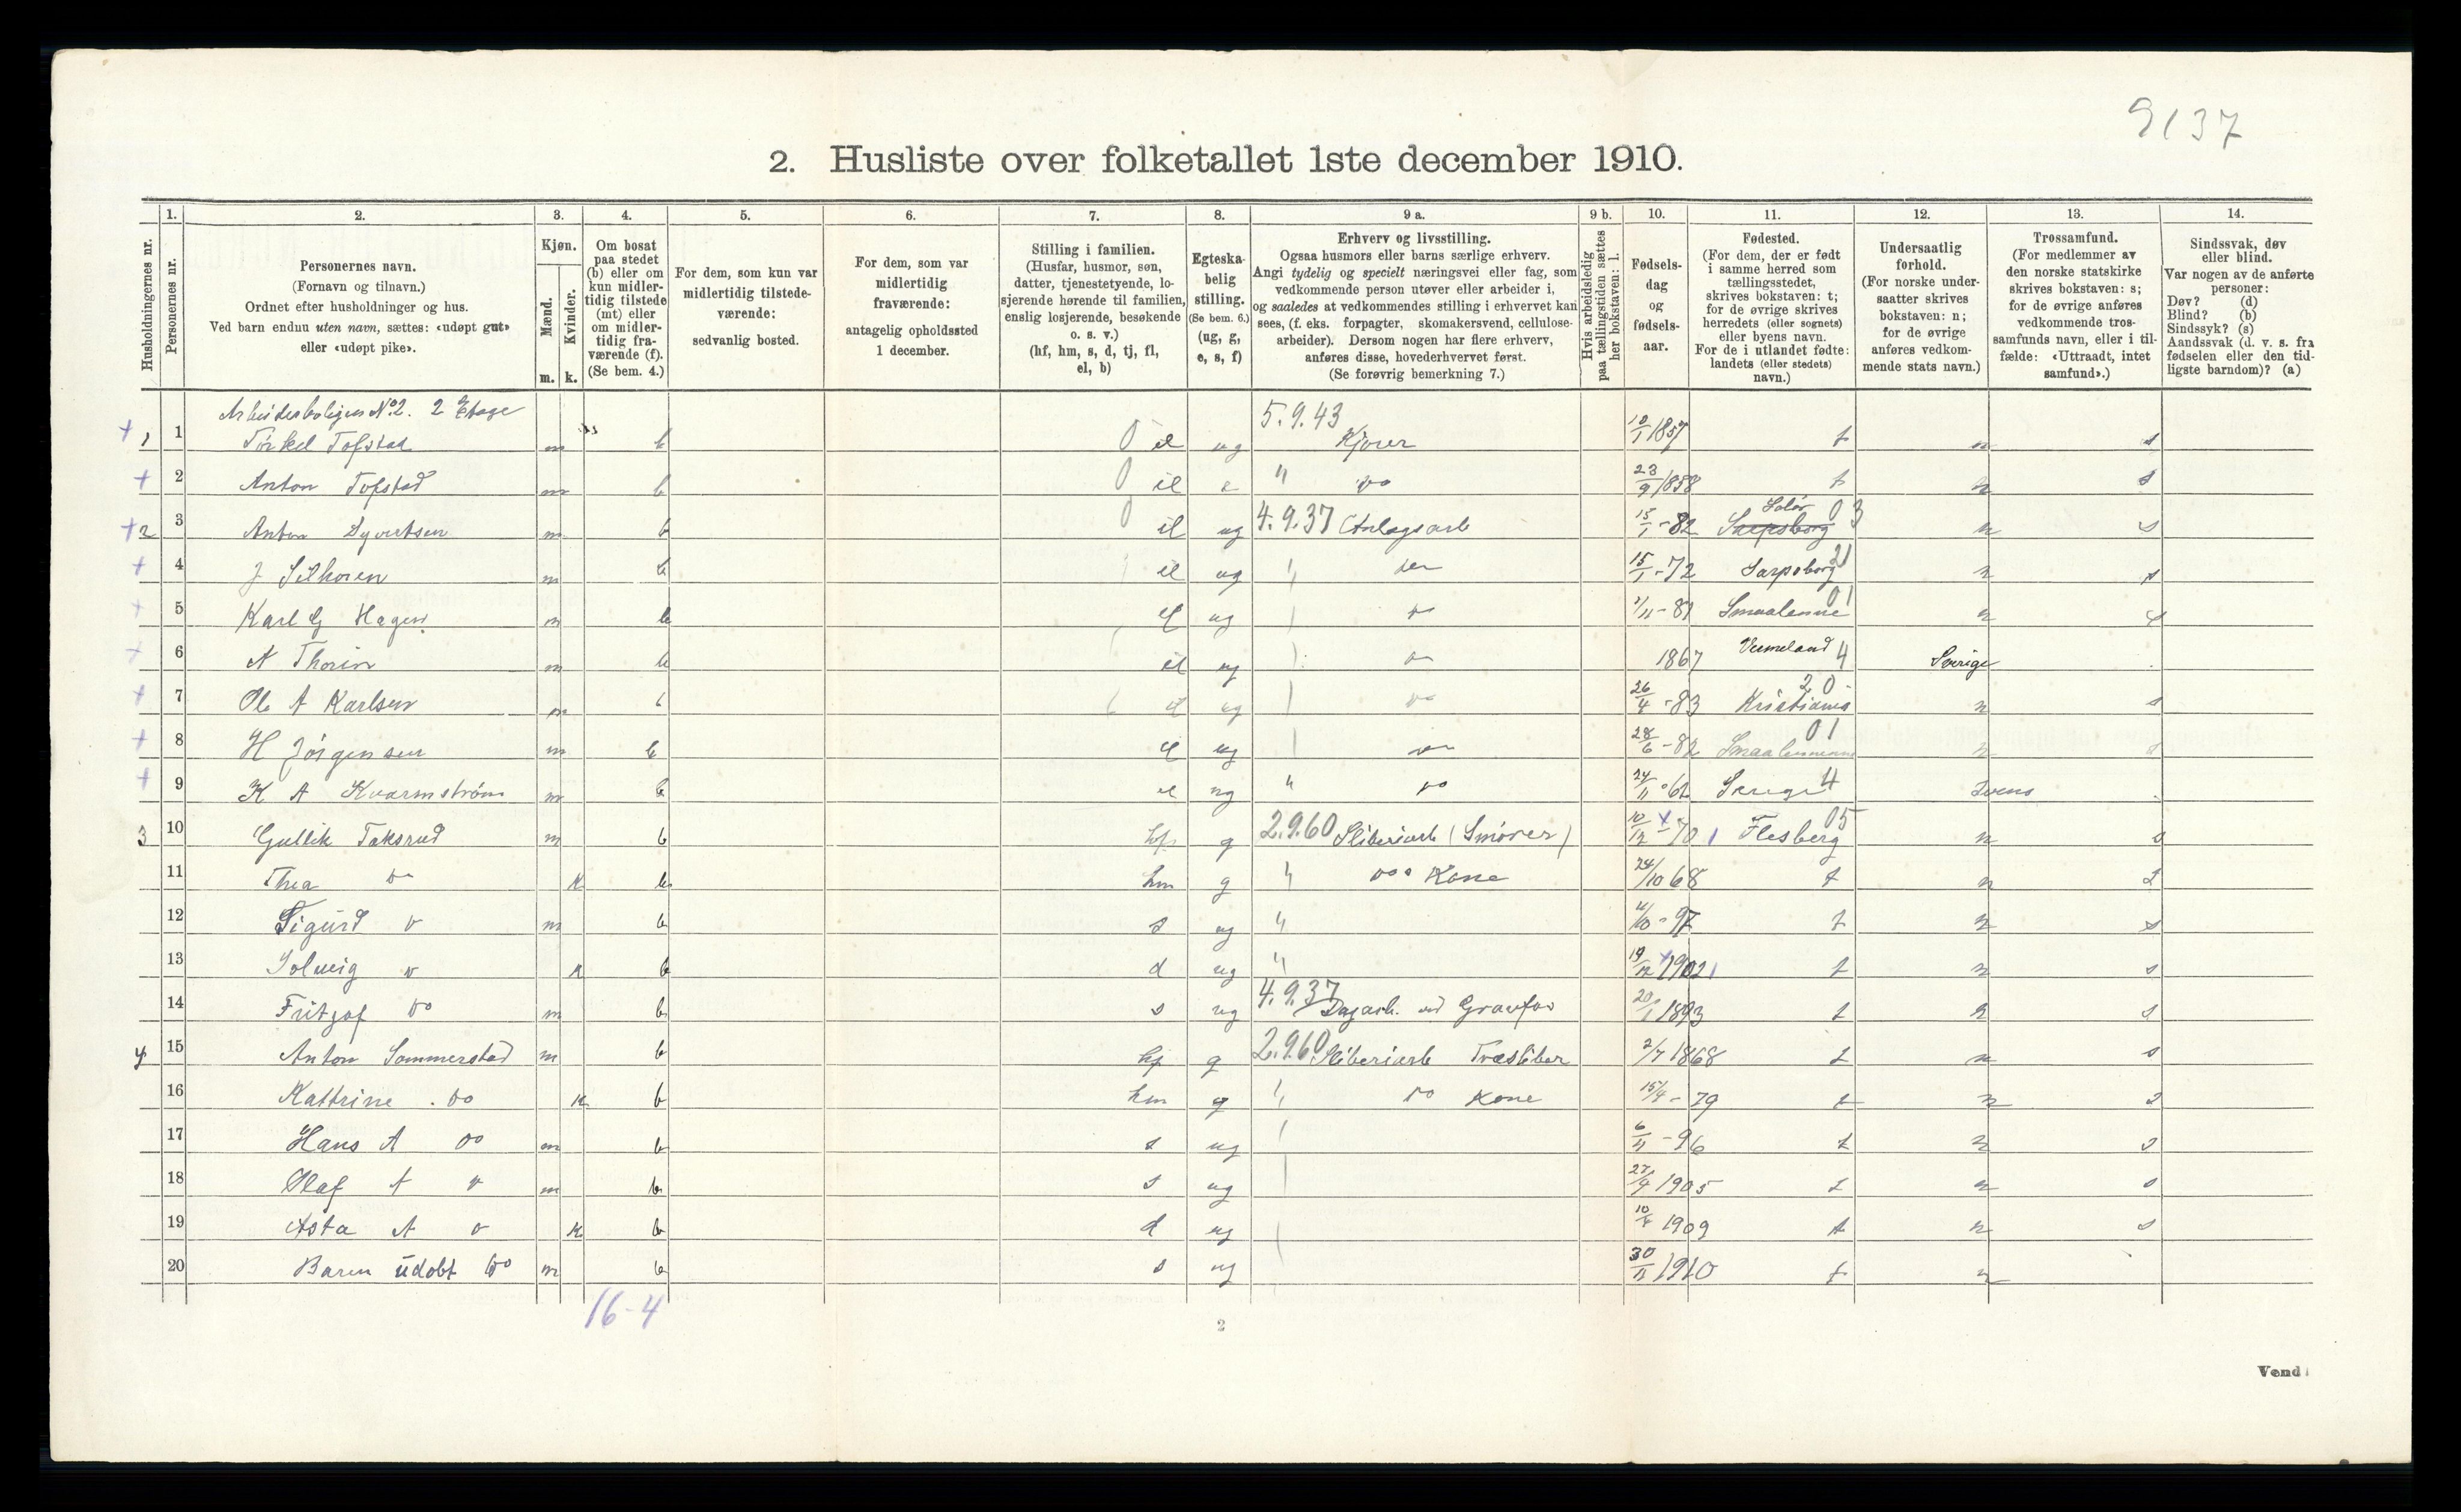 9137
2. Husliste over folketallet 1ste december 1910.
Husholdningernes nr.
1.
Personernes nr.
2.
Personernes navn.
(Fornavn og tilnavn.)
Ordnet efter husholdninger og hus.
Ved barn endnu uten navn, sættes: «udøpt gut»
eller «udøpt pike».
3.
Kjøn.
Mænd.
Kvinder.
m. k.
4.
Om bosat
paa stedet
(b) eller om
kun midler-
tidig tilstede
(mt) eller
om midler-
tidig fra-
værende (f).
(Se bem. 4.)
5.
For dem, som kun var
midlertidig tilstede-
værende:
sedvanlig bosted.
6.
For dem, som var
midlertidig
fraværende:
antagelig opholdssted
1 december.
7.
Stilling i familien.
(Husfar, husmor, søn,
datter, tjenestetyende, lo-
sjerende hørende til familien,
enslig losjerende, besøkende
o. s. v.)
(hf, hm, s, d, tj, fl,
el, b)
8.
Egteska-
belig
stilling.
(Se bem. 6.)
(ug, g,
e, s, f)
9 a.
Erhverv og livsstilling.
Ogsaa husmors eller barns særlige erhverv.
Angi tydelig og specielt næringsvei eller fag, som
vedkommende person utøver eller arbeider i,
og saaledes at vedkommendes stilling i erhvervet kan
sees, (f. eks. forpagter, skomakersvend, cellulose-
arbeider). Dersom nogen har flere erhverv,
anføres disse, hovederhvervet først.
(Se forøvrig bemerkning 7.)
9 b.
Hvis arbeidsledig
paa tællingstiden sættes
her bokstaven: l.
10.
Fødsels-
dag
og
fødsels-
aar.
11.
Fødested.
(For dem, der er født
i samme herred som
tællingsstedet,
skrives bokstaven: t;
for de øvrige skrives
herredets (eller sognets)
eller byens navn.
For de i utlandet fødte:
landets (eller stedets)
navn.)
12.
Undersaatlig
forhold.
(For norske under-
saatter skrives
bokstaven: n;
for de øvrige
anføres vedkom-
mende stats navn.)
13.
Trossamfund.
(For medlemmer av
den norske statskirke
skrives bokstaven: s;
for de øvrige anføres
vedkommende tros-
samfunds navn, eller i til-
fælde: «Uttraadt, intet
samfund».)
14.
Sindssvak, døv
eller blind.
Var nogen av de anførte
personer:
Døv? (d)
Blind? (b)
Sindssyk? (s)
Aandssvak (d. v. s. fra
fødselen eller den tid-
ligste barndom)? (a)
Arbeiderboligen No 2. 2 Etage 5.9.43
+ 1 1 Torkel Tofstad m b 0 el ug Kjører 10/1 1857 t n s
+ 2 Anton Tofstad m b 0 el e " do 23/9 1858 t n s
+ 2 3 Anton Syvertsen m b 0 el ug 4.9.37 Anlagsarb 15/1 - 82 Solør 03 Sarpsborg n s
+ 4 m b el ug 15/1 - 72 Sarpsborg 21 n s
+ 5 Karl G Hagen m b el ug do - 81 Smaalenene 01 n s
+ 6 A Thorin m b el ug do 1867 Vermeland 4 Sverige
+ 7 Ole A Karlsen m b el ug do 26/4 - 83 20 Kristiania n s
+ 8 H Jörgensen m b el ug do 28/6 - 82 01 Smaalenenene n s
+ 9 K A Kvarmstrøm m b el ug " do 24/11 - 61 Sverige 4 Svens
3 10 Gullik Taksrud m b hf g 2.9.60 Sliberiarb (Smører) 10/12 - 70 Flesberg 05 n s
11 Thea do k b hm g " do Kone 24/10 68 t n s
12 Sigurd do m b s ug " - 97 t n s
13 Solveig do k b d ug " 19/12 1902 t n s
14 Fritjof do m b s ug 4.9.37 Dagarb. ved Gravfos 20/1 1893 t n s
4 15 Anton Sommerstad m b hf g 2.9.60 Sliberiarb Træsliber 2/7 1868 t n s
16 Kattrine do k b hm g " do Kone 15/4 - 79 t n s
17 Hans A do m b s ug 6/11 - 96 t n s
18 Olaf A do m b s ug 1905 t n s
19 Asta A do k b d ug 1909 t n s
20 Baren udøbt do m b s ug 30/11 1910 t n
16 - 4
2
Vend